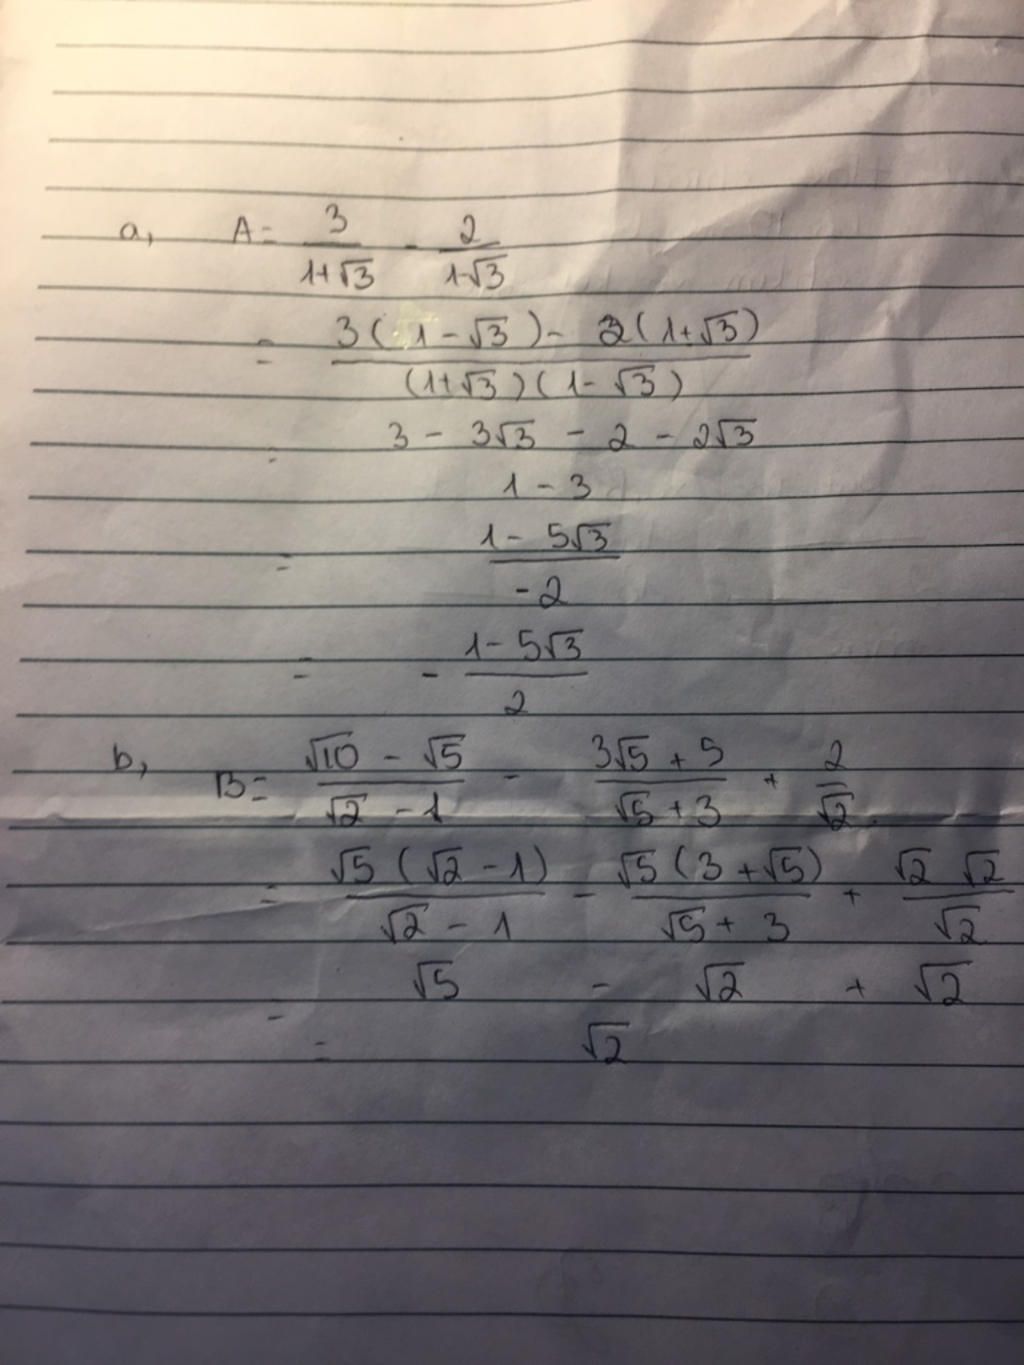 a, A = 3/(1+√3) - 2/(1-√3)
= (3(1-√3) - 2(1+√3))/((1+√3)(1-√3))
= (3 - 3√3 - 2 - 2√3)/(1 - 3)
= (1 - 5√3)/(-2)
= - (1 - 5√3)/2
b, B = (√10 - √5)/(√2 - 1) - (3√5 + 5)/(√5 + 3) + 2/√2.
= (√5(√2 - 1))/(√2 - 1) - (√5(3 + √5))/(√5 + 3) + (√2 √2)/√2
= √5 - √2 + √2
= √2